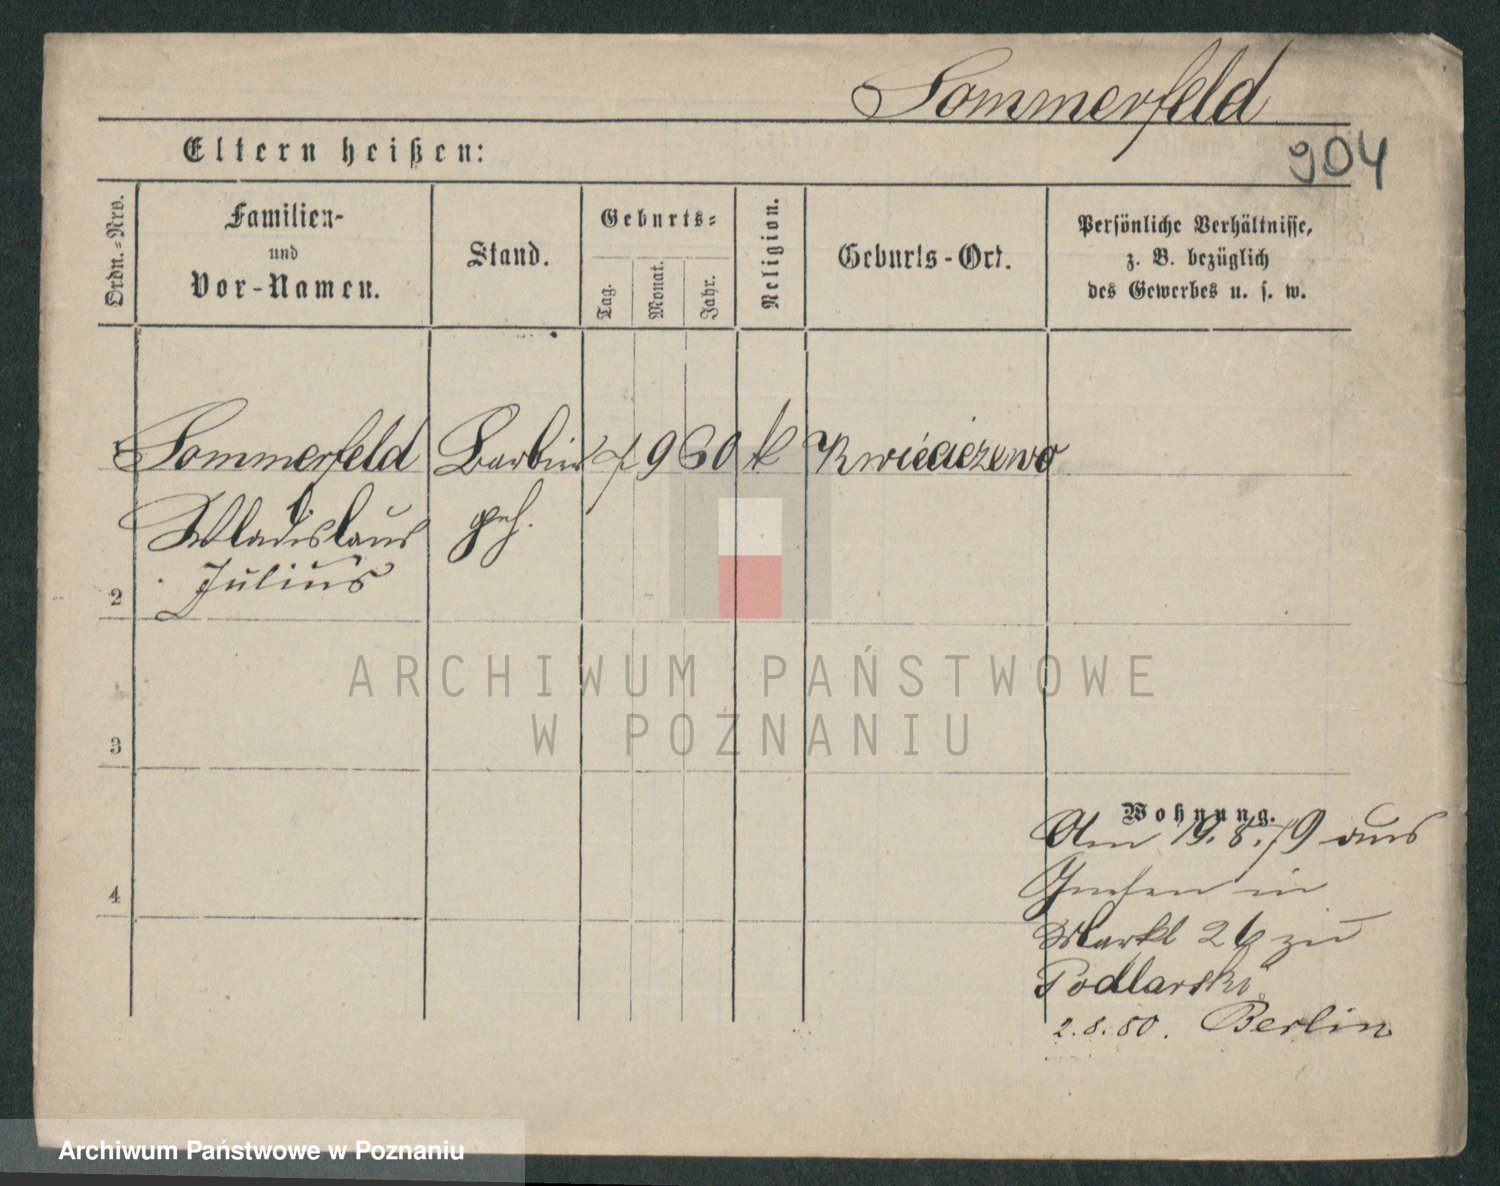 Sommerfeld
904
Eltern heißen:
Ordn.-Nro.
Familien-
und
Vor-Namen.
Stand.
Geburts-
Tag.
Monat.
Jahr.
Religion.
Geburts-Ort.
Persönliche Verhältnisse,
z. B. bezüglich
des Gewerbes u. s. w.
Sommerfeld Barbier 7 9 60 k Kwieciszewo
Wladislaus geh.
Julius
2
3
4
ARCHIWUM PAŃSTWOWE
W POZNANIU
Wohnung.
Am 19.8.79 aus
Gnesen in
Markt zu
Podlarski
2.8.80. Berlin
Archiwum Państwowe w Poznaniu